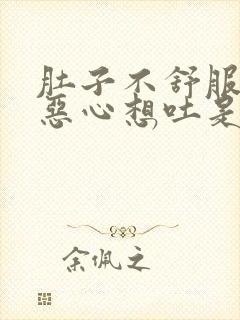 肚子不舒服
惡心想吐是
余佩之